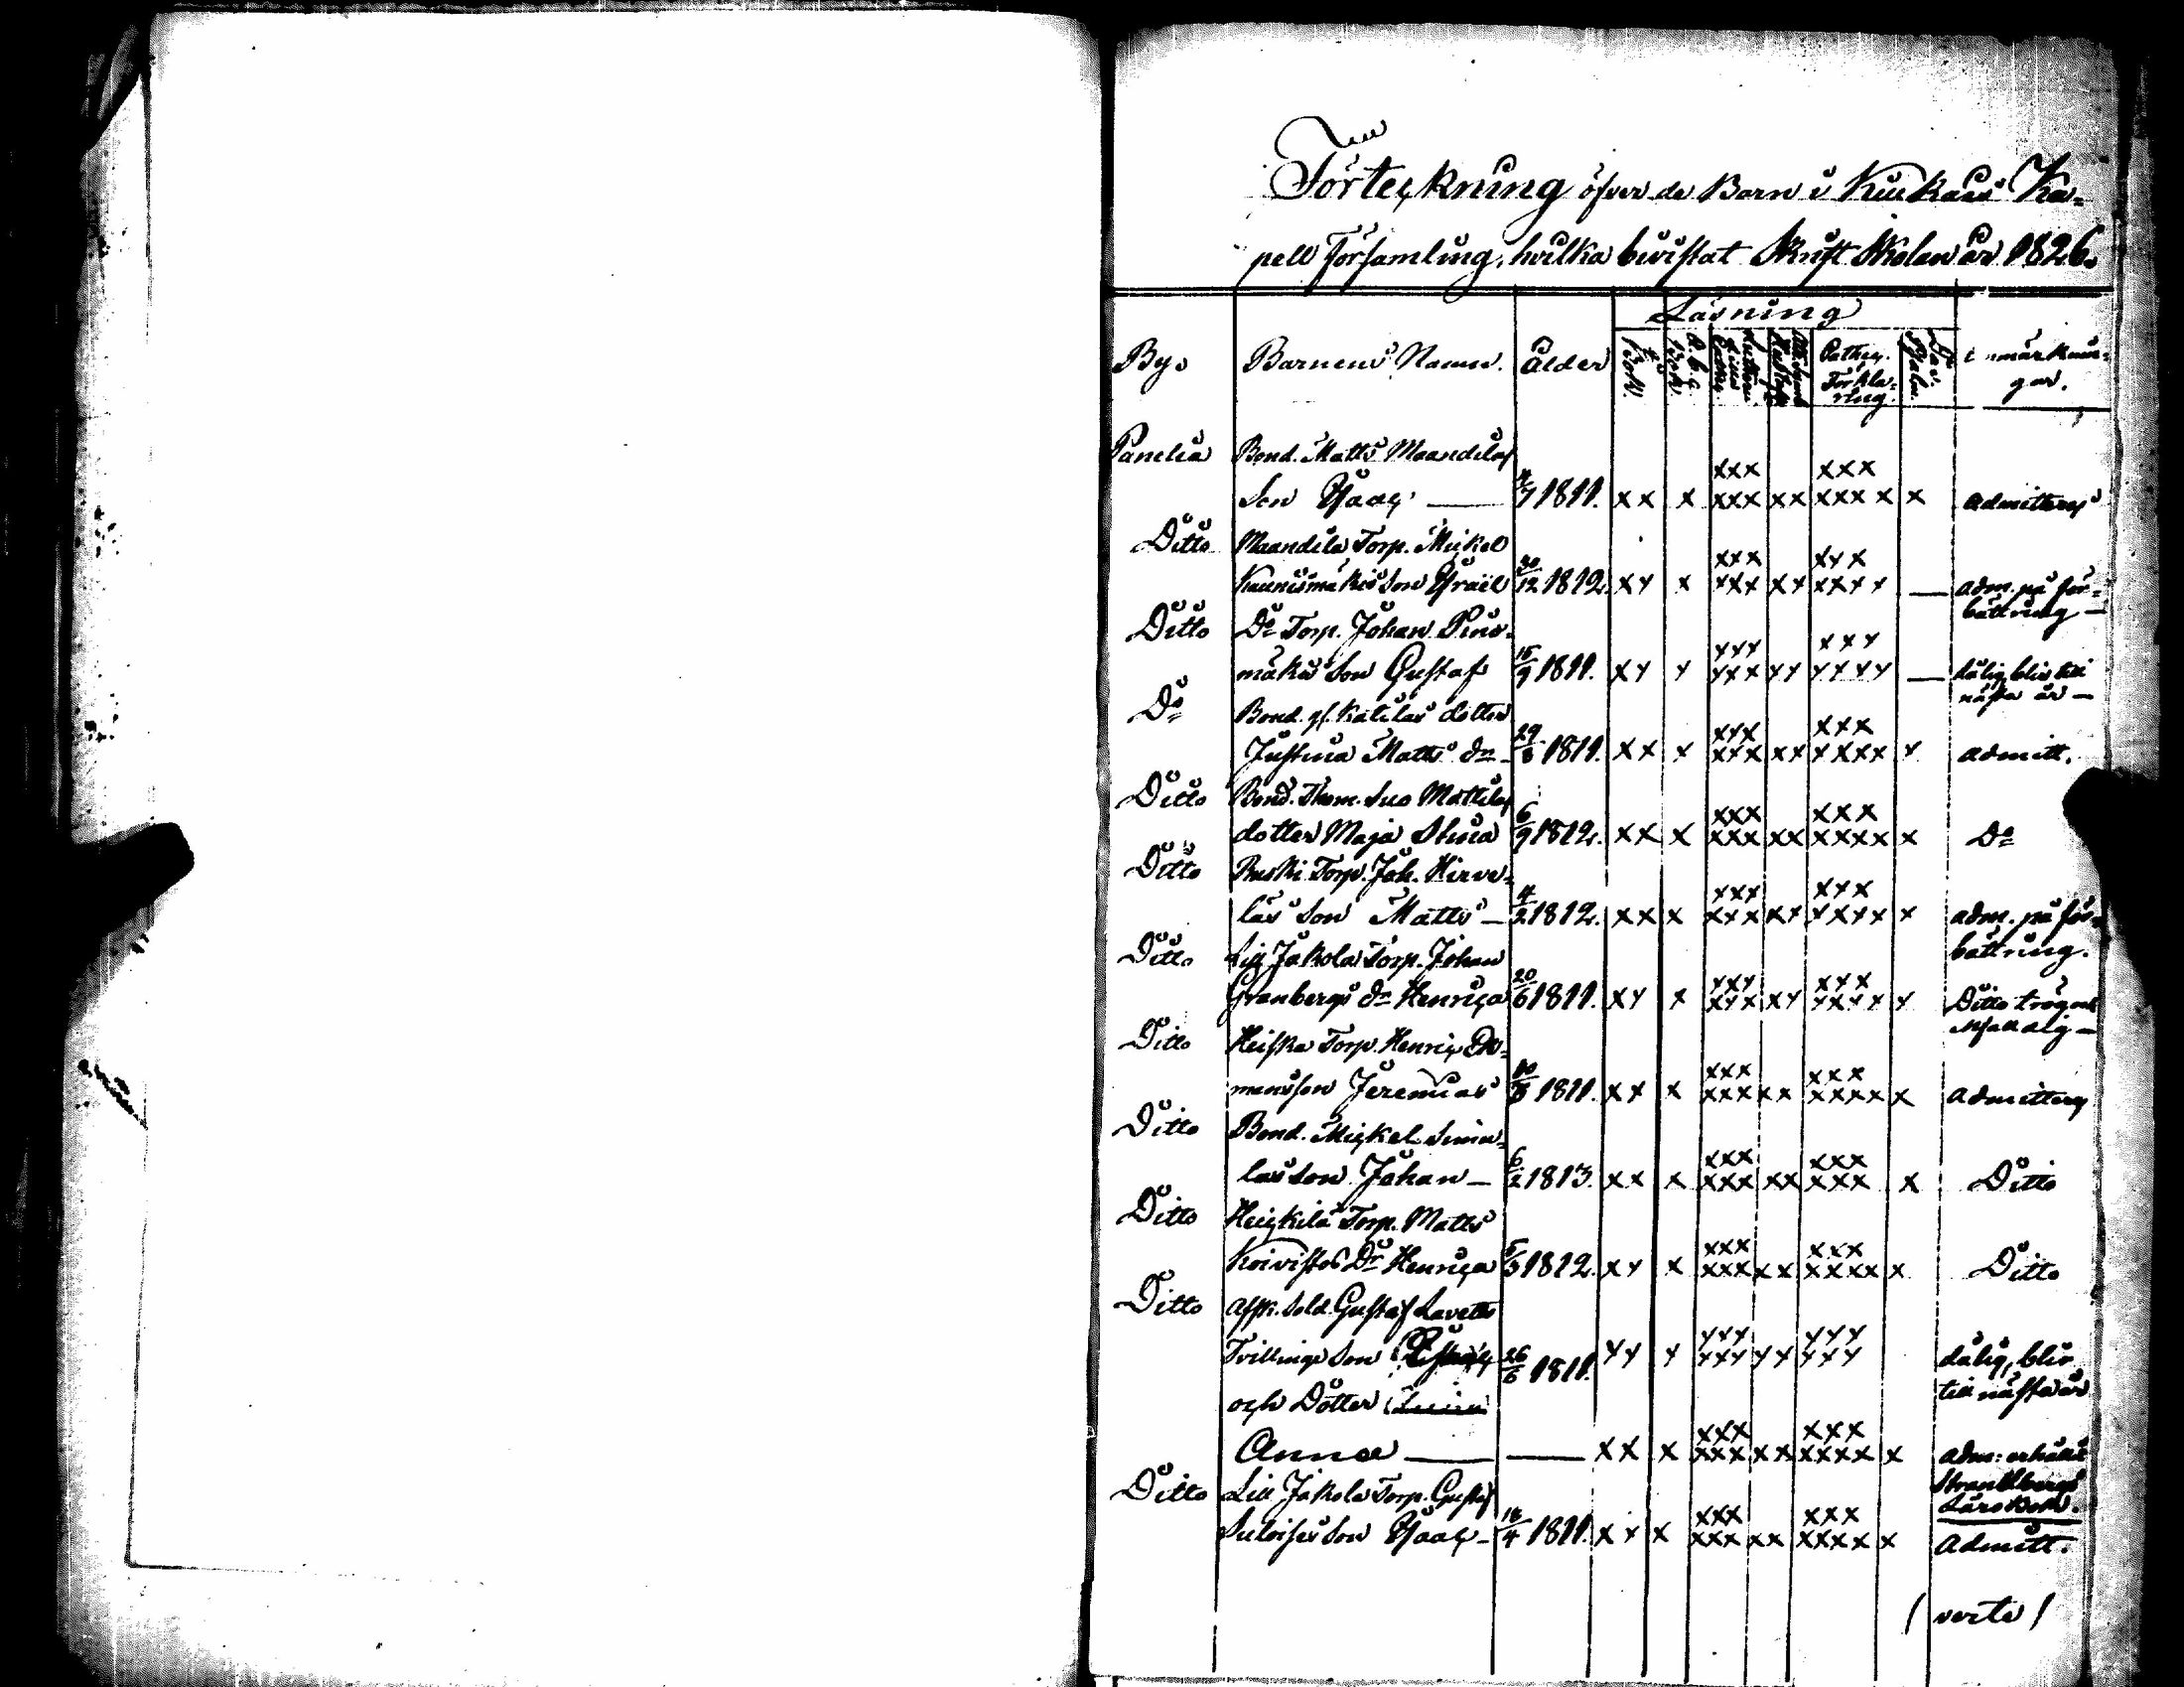 Förteckning öfver de Barn i Kiukais Ka-
pell Församling, hvilka bevistat Skrift Skolan år 1826.
Läsning
By. Barnens Namn. Ålder I Bok. A.b.c. Bok. Catheg. Förkla-
ring. An märknin-
gar.
Panelia Bond. Matts Maandilas
Son Isaac — 1811. xx x xxx xxx xx xxx xxxx x admitteras
Ditto Maandila Torp. Mickel
Kaunismäkis Son Israel 30/12 1812. xx x xxx xxx xx xxx xxxx — adm. på för-
bättring —
Ditto Do Torp. Johan Pinos-
mäkis Son Gustaf 15/9 1811. xx x xxx xxx xx xxx xxxx — dålig, blir till
nästa år —
Do Bond. gf. Katilas dotter
Justina Matts dr 29/8 1811. xx x xxx xxx xx xxx xxxx x admitt.
Ditto Bond. Thom. Suo Mattilas
dotter Maja Stina 6/9 1812. xx x xxx xxx xx xxx xxxx x Do
Ditto Ruski Torp. Joh. Hirve-
läs Son Matts — 4/2 1812. xx x xxx xxx xx xxx xxxx x adm. på för-
bättring.
Ditto Lill Jakola Torp. Johan
Granbergs dr Henrica 20/6 1811. xx x xxx xxx xx xxx xxxx x Ditto trög och
Ditto Heiska Torp. Henric Ek-
mans son Jeremias 10/8 1811. xx x xxx xxx xx xxx xxxx x admitteras
Ditto Bond. Mickel Simu-
las Son Johan — 6/2 1813. xx x xxx xxx xx xxx xxx x Ditto
Ditto Heickilä Torp. Matts
Koivistos Dr Henrica 5/3 1812. xx x xxx xxx xx xxx xxxx x Ditto
Ditto Afsk. Sold. Gustaf Lavetts
Tvillinge Son 26/6 1811. xx x xxx xxx xx xxx xxx dålig, blir
till nästa år
och Dotter
Anna — — xx x xxx xxx xx xxx xxxx x adm: erhållit
Strandbergs
Lärobok.
Ditto Lill Jakola Torp. Gustaf
Suloises Son Isaac — 18/4 1811. xx x xxx xxx xx xxx xxxx x Admitt.
(verte)